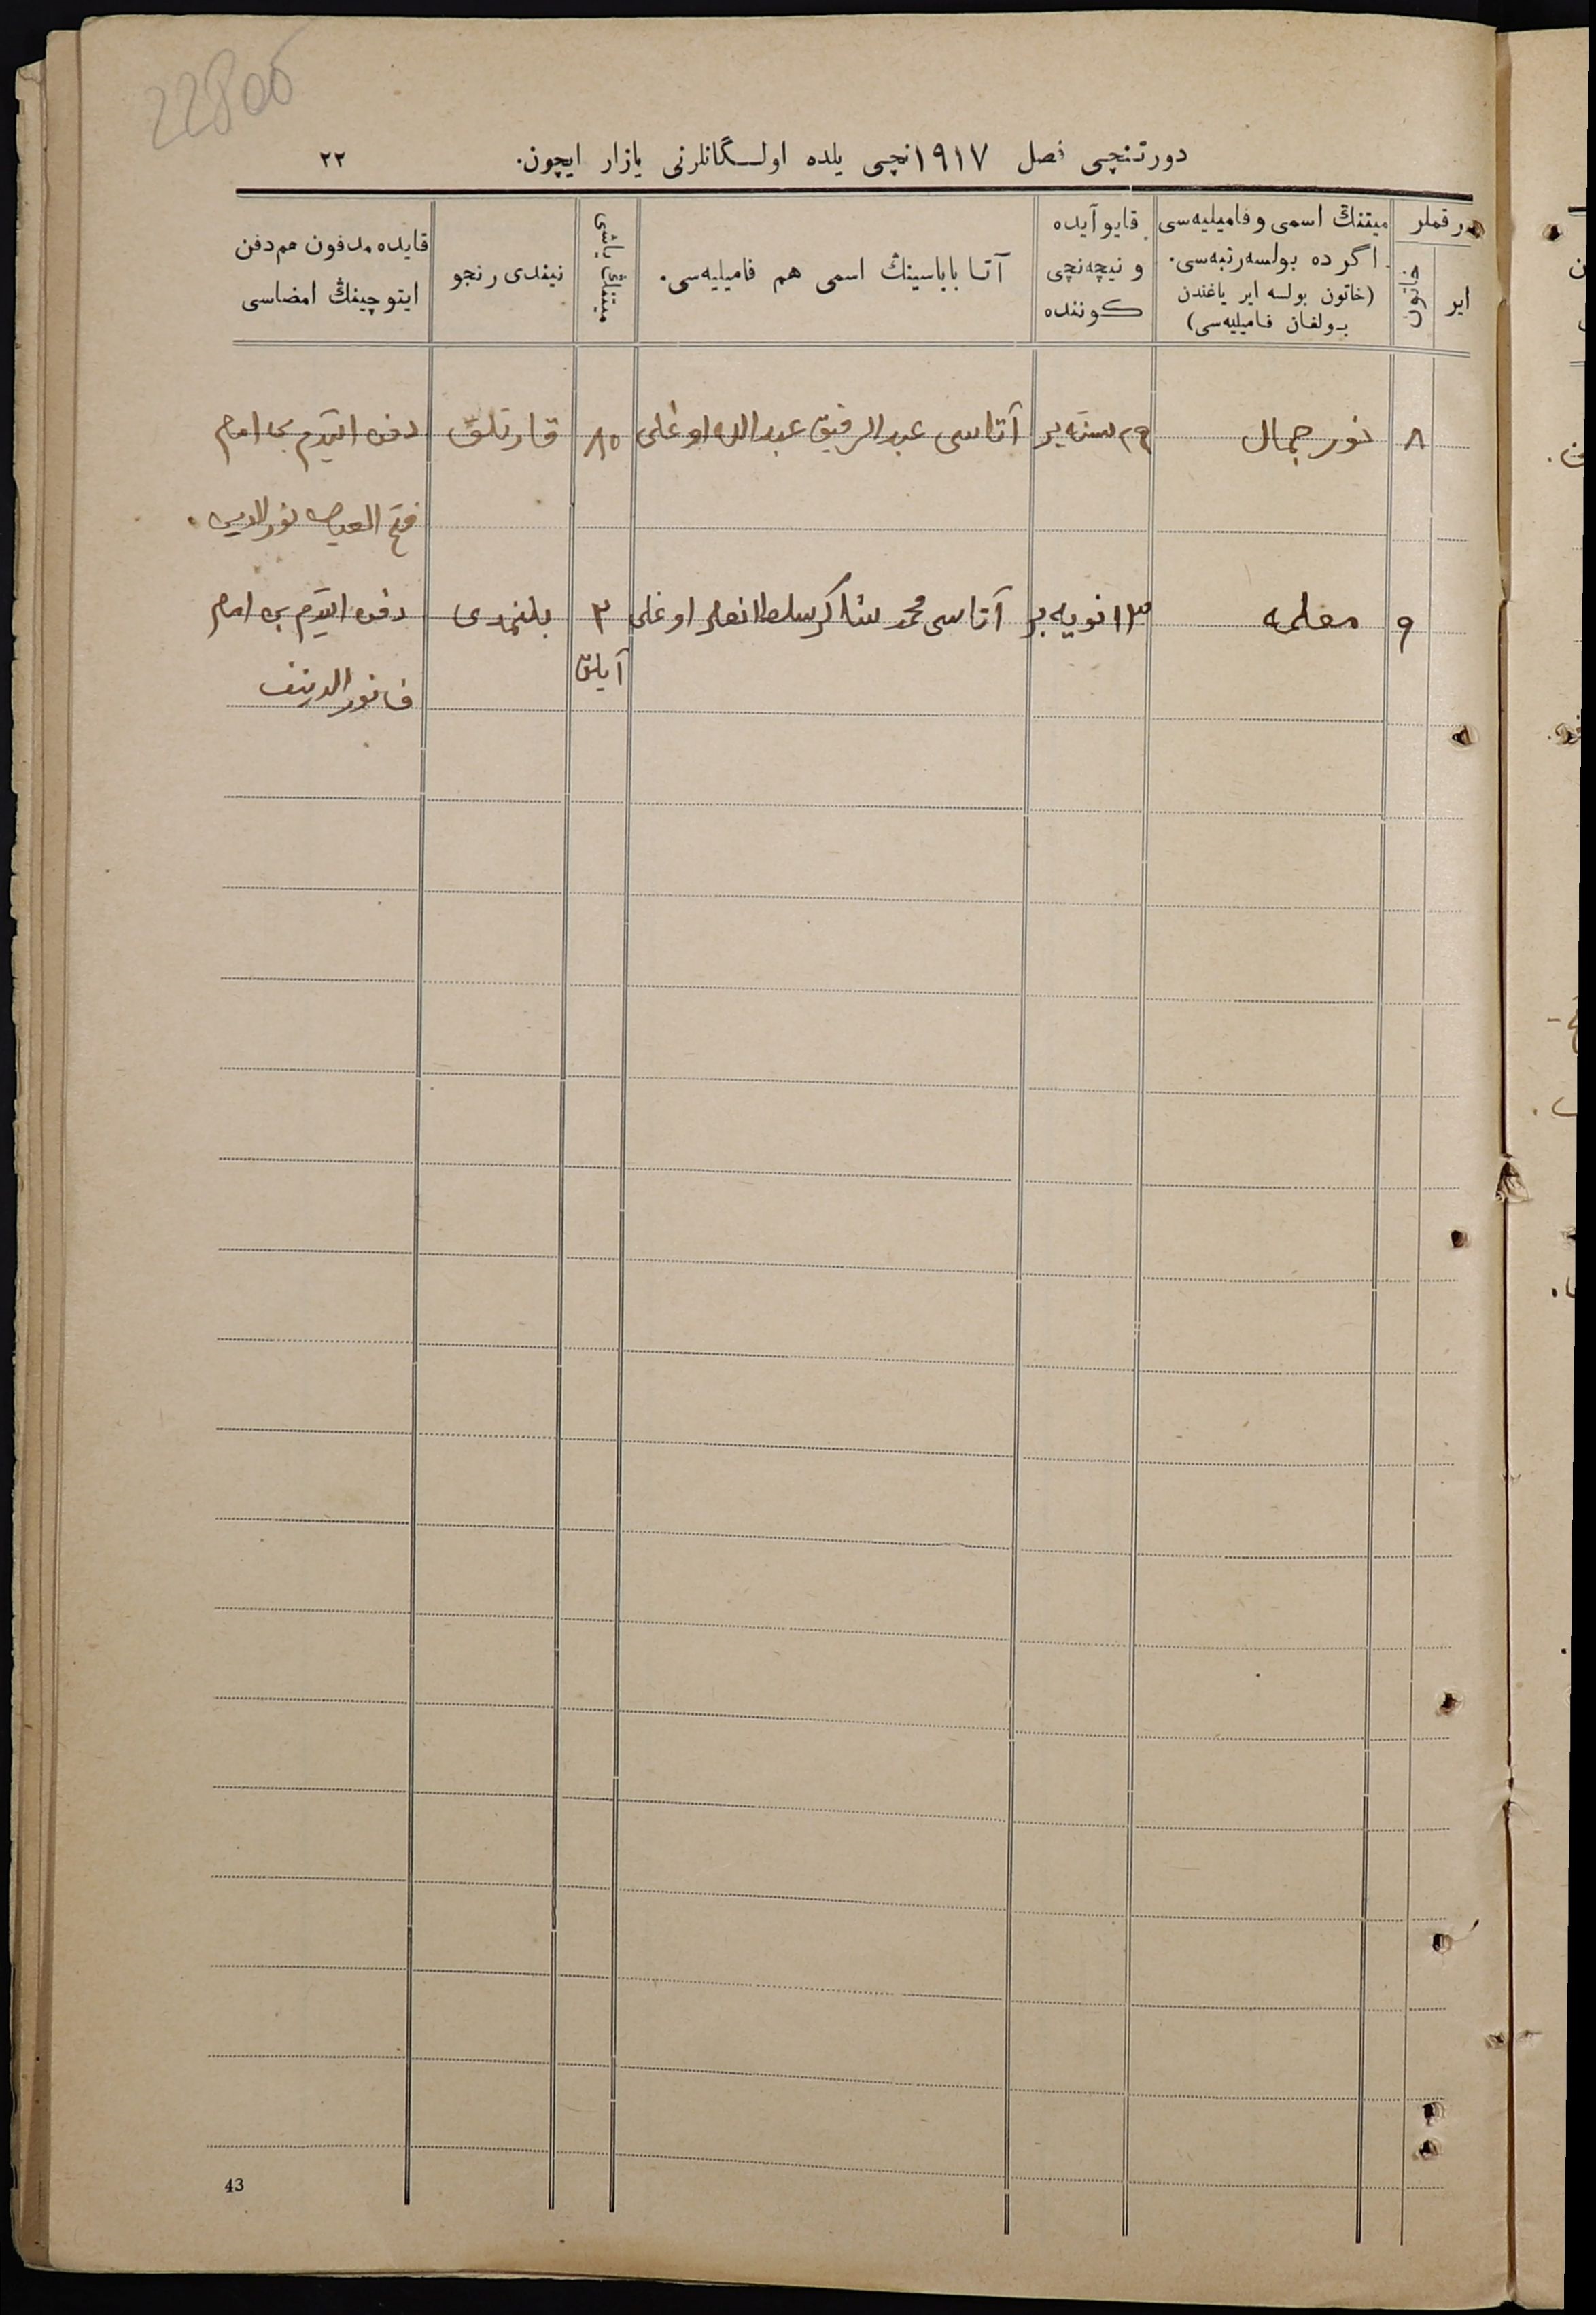 22800
دورتنچی فصل ۱۹۱۷نچی یلده اولگانلرنی یازار ایچون. ۲۲
رقملر
ایر
خاتون
میتنڭ اسمی و فامیلیه‌سی
اگر ده بولسه رتبه‌سی.
(خاتون بولسه ایر یاغندن
بولغان فامیلیه‌سی)
قایو آیده
و نیچه‌نچی
کوننده
آتا باباسینڭ اسمی هم فامیلیه‌سی.
میتنڭ یاشی
نیندی رنجو
قایده مدفون هم دفن
ایتوچینڭ امضاسی
۸ نور جمال ۲۹ سنته‌بر آتاسی عبد الرفیق عبد الله اوغلی ۸۵ قارتلق دفن ایتدم بن امام
فتح نورالدین
۹ معلمه ۱۳ نویه‌بر آتاسی محمد شاکر اوغلی ۲ بلنمدی دفن ایتدم بن امام
آیلق ف نورالدینف
43